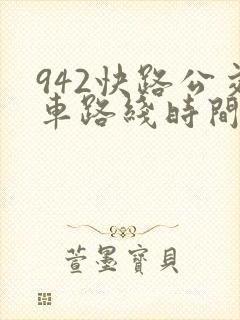 942快路公交
車路綫時間
萱墨寶貝